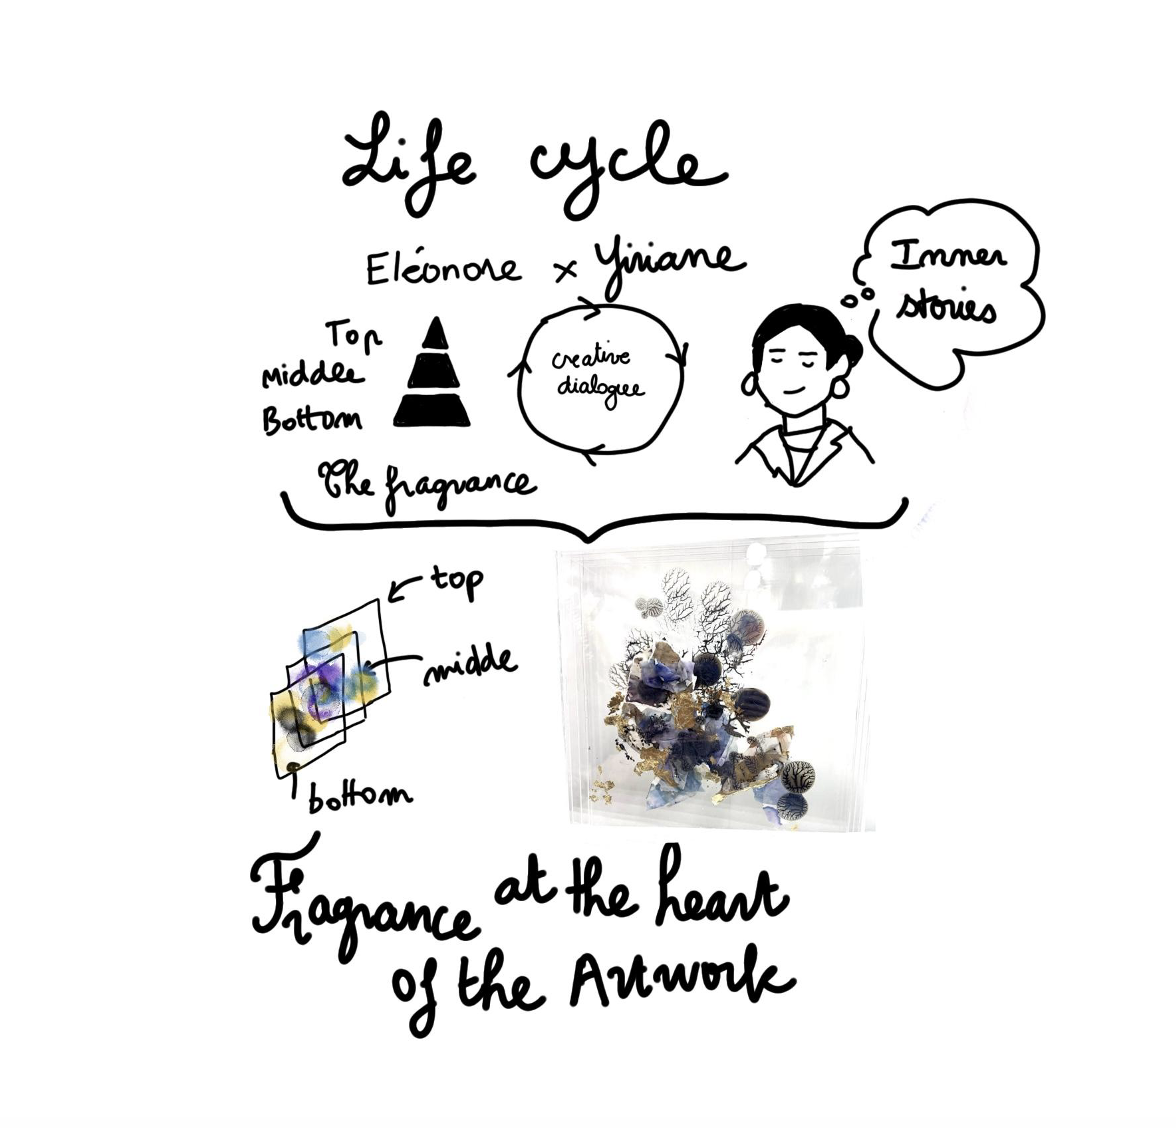 Life cycle
Eléonore x Yiriane
Inner
stories
Top
Middle
Bottom
creative
dialogue
The fragrance
top
midde
bottom
Fragrance at the heart
of the Artwork